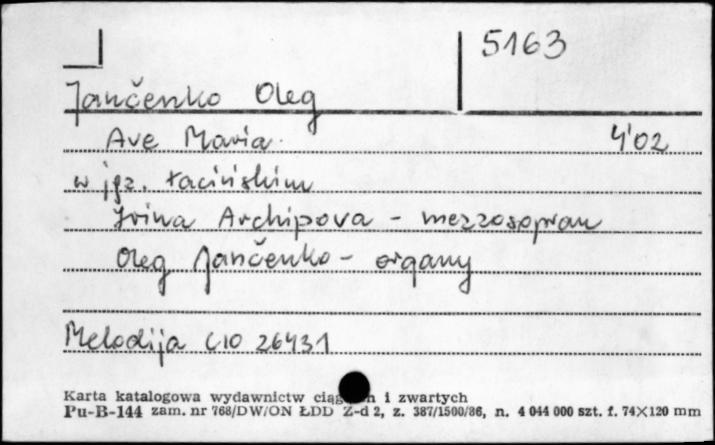 5163
Jančenko Oleg
Ave Maria 4'02
w jęz. łacińskim
Irina Archipova - mezzosopran
Oleg Jančenko - organy
Melodija C10 26431
Karta katalogowa wydawnictw i zwartych
Pu-B-144 zam. nr 768/DW/ON ŁDD Z-d 2, z. 387/1500/86, n. 4 044 000 szt. f. 74×120 mm